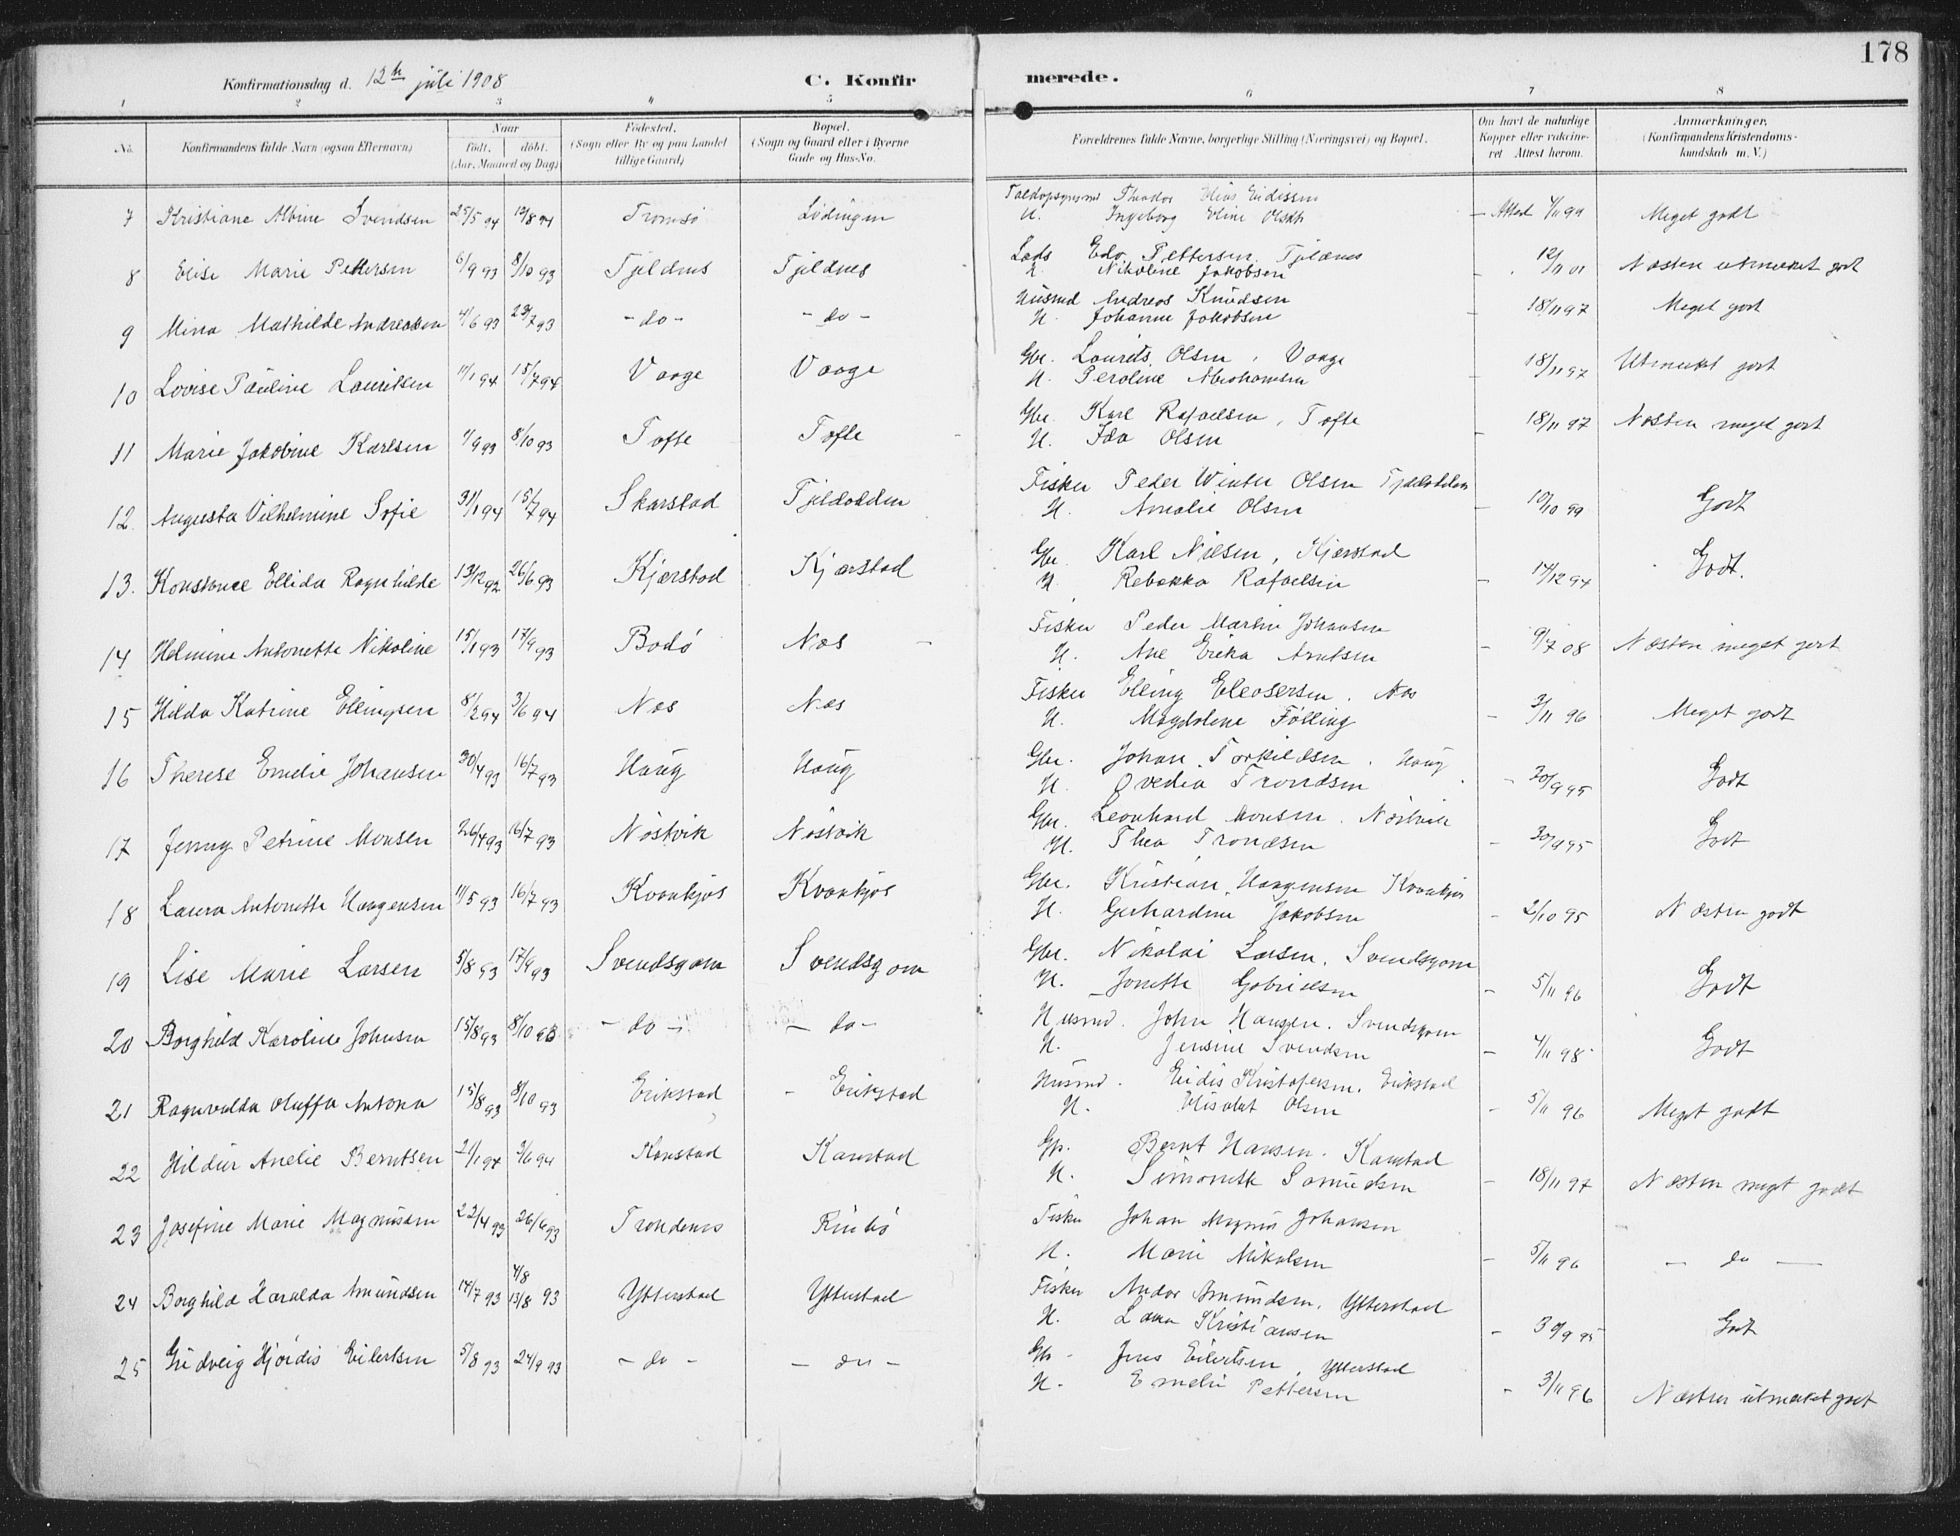 178
Konfirmationsdag d. 12te juli 1908
C. Konfirmerede.
1 2 3 4 5 6 7 8
No.
Konfirmandens fulde Navn (ogsaa Efternavn)
Naar
født. døbt.
(Aar, Maaned og Dag)
Fødested.
(Sogn eller By og paa Landet
tillige Gaard)
Bopæl.
(Sogn og Gaard eller i Byerne
Gade og Hus-No.
Forældrenes fulde Navne, borgerlige Stilling (Næringsvei) og Bopæl.
Om havt de naturlige
Kopper eller vaccine-
ret Attest herom.
Anmærkninger.
(Konfirmandens Kristendoms-
kundskab m. V.)
7 Kristiane Albine Svendsen 25/5 94 12/8 94 Tromsø Lødingen Theodor Elias Eidissen
H. Ingeborg Eline - Attest 4/11 99 Meget godt
8 Elise Marie Pettersen 6/9 93 8/10 93 Tjeldnes Tjeldnes Lods Edv. Pettersen, Tjeldnes
H. Nikoline Jakobsen - 12/11 01 Næsten utmerket godt
9 Mina Mathilde Andreassen 4/6 93 23/7 93 - do - - do - Husmd Andreas Knudsen
H. Johanne Jakobsen - 18/11 97 Meget godt
10 Lovise Pauline Lauritsen 11/1 94 15/7 94 Vaage Vaage Gbr. Laurits Olsen, Vaage
H. Peroline Abrahamsen - 18/11 97 Utmerket godt
11 Marie Jakobine Karlsen 1/9 93 8/10 93 Tofte Tofte Gbr. Karl Rafaelsen, Tofte
H. Ida Olsen - 18/11 97 Næsten meget godt
12 Augusta Vilhelmine Sofie 31/1 94 15/7 94 Skarstad Tjeldodden Fisker Peder Winter Olsen Tjeldodden
H. Amalie Olsen - 10/10 99 Godt
13. Konstance Ellida Ragnhilde 13/12 92 26/6 93 Kjærstad Kjærstad Gbr. Karl Nilsen, Kjærstad
H. Rebekka Rafaelsen - 14/12 94 Godt.
14 Helmine Antonette Nikoline 15/1 93 17/9 93 Bodø Næs Fisker Peder Martin Johansen
H. Ane Erika Arntsen - 9/7 08 Næsten meget godt
15 Hilda Katrine Ellingsen 8/2 94 3/6 94 Næs Næs Fisker Elling Eleasersen. Næs
H. Magdalena Følling - 3/11 96 Meget godt
16 Therese Emelie Johansen 30/4 93 16/7 93 Haug Haug Gbr. Johan Torkildsen. Haug
H. Ovedia Trondsen - 30/9 95 Godt
17 Jenny Petrine Monsen 26/4 93 16/7 93 Nøstvik Nøstvik Gbr. Leonhard Monsen. Nøstvik
H. Thea Trondsen - 30/9 95 Godt
18 Laura Antonette Haagensen 11/5 93 16/7 93 Kvankjos Kvankjos Gbr. Kristian Haagensen Kvankjos
H. Gerhardine Jakobsen - 2/10 95 Næsten godt
19 Lise Marie Larsen 5/8 93 17/9 93 Svendsgam Svendsgam Gbr. Nikolai Larsen, Svendsgam
H. Jonette Gabrielsen - 5/11 96 Godt
20 Borghild Karoline Johnsen 15/8 93 8/10 93 - do - - do - Husmd. John Hansen. Svendsgam
H. Jensine Svendsen - 4/11 98 Godt
21 Ragnvalda Oluffa Antona 15/8 93 8/10 93 Erikstad - Erikstad Husmd. Eidis Kristofersen. Erikstad
H. Elisabet Olsen - 5/11 96 Meget godt
22 Hildur Anelie Berntsen 21/1 94 3/6 94 Kanstad Kanstad Gbr. Bernt Hansen. Kanstad
H. Simonette Samuelsen - 18/11 97 Næsten meget godt
23 Josefine Marie Magnussen 22/4 93 26/6 93 Trondenes Rinbø Fisker Johan Magnus Johansen
H. Marie Mikalsen - 5/11 96 - do -
24 Borghild Haralda Amundsen 14/7 93 4/8 13/8 93 Ytterstad Ytterstad Fisker Andor Amundsen, Ytterstad
H. Laura Kristiansen - 30/9 95 Godt
25 Gudveig Hjørdis Eilertsen 5/8 93 24/9 93 - do - - do - Gbr. Jens Eilertsen, Ytterstad
H. Emelie Pettersen - 3/11 96 Næsten utmerket godt